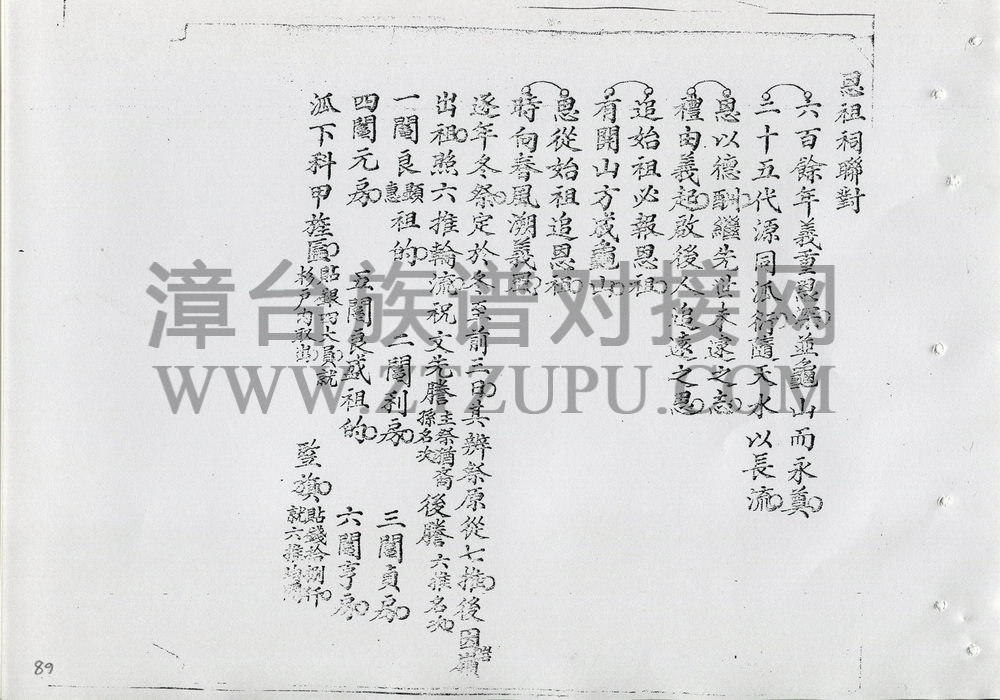 恩祖祠聯對
六百餘年義重恩深並龜山而永奠
三十五代源同派衍隨天水以長流
恩以德酬繼先世未逮之志
禮由義起啟後人追遠之思
追始祖必報恩祖
有開山方成龜山
恩從始祖追恩祖
時向春風溯義風
逐年冬祭定於冬至前三日其辦祭原從七推後因
出祖照六推輪流祝文先謄主祭裔孫名次後謄六推名次
一鬮良顯惠祖的 二鬮利房 三鬮貞房
四鬮元房 五鬮良盛祖的 六鬮亨房
派下科甲旌匾貼銀四大員就杉戶內取出 豎旗貼錢拾捌仟就六推
漳台族谱对接网
WWW.ZTZUPU.COM
89